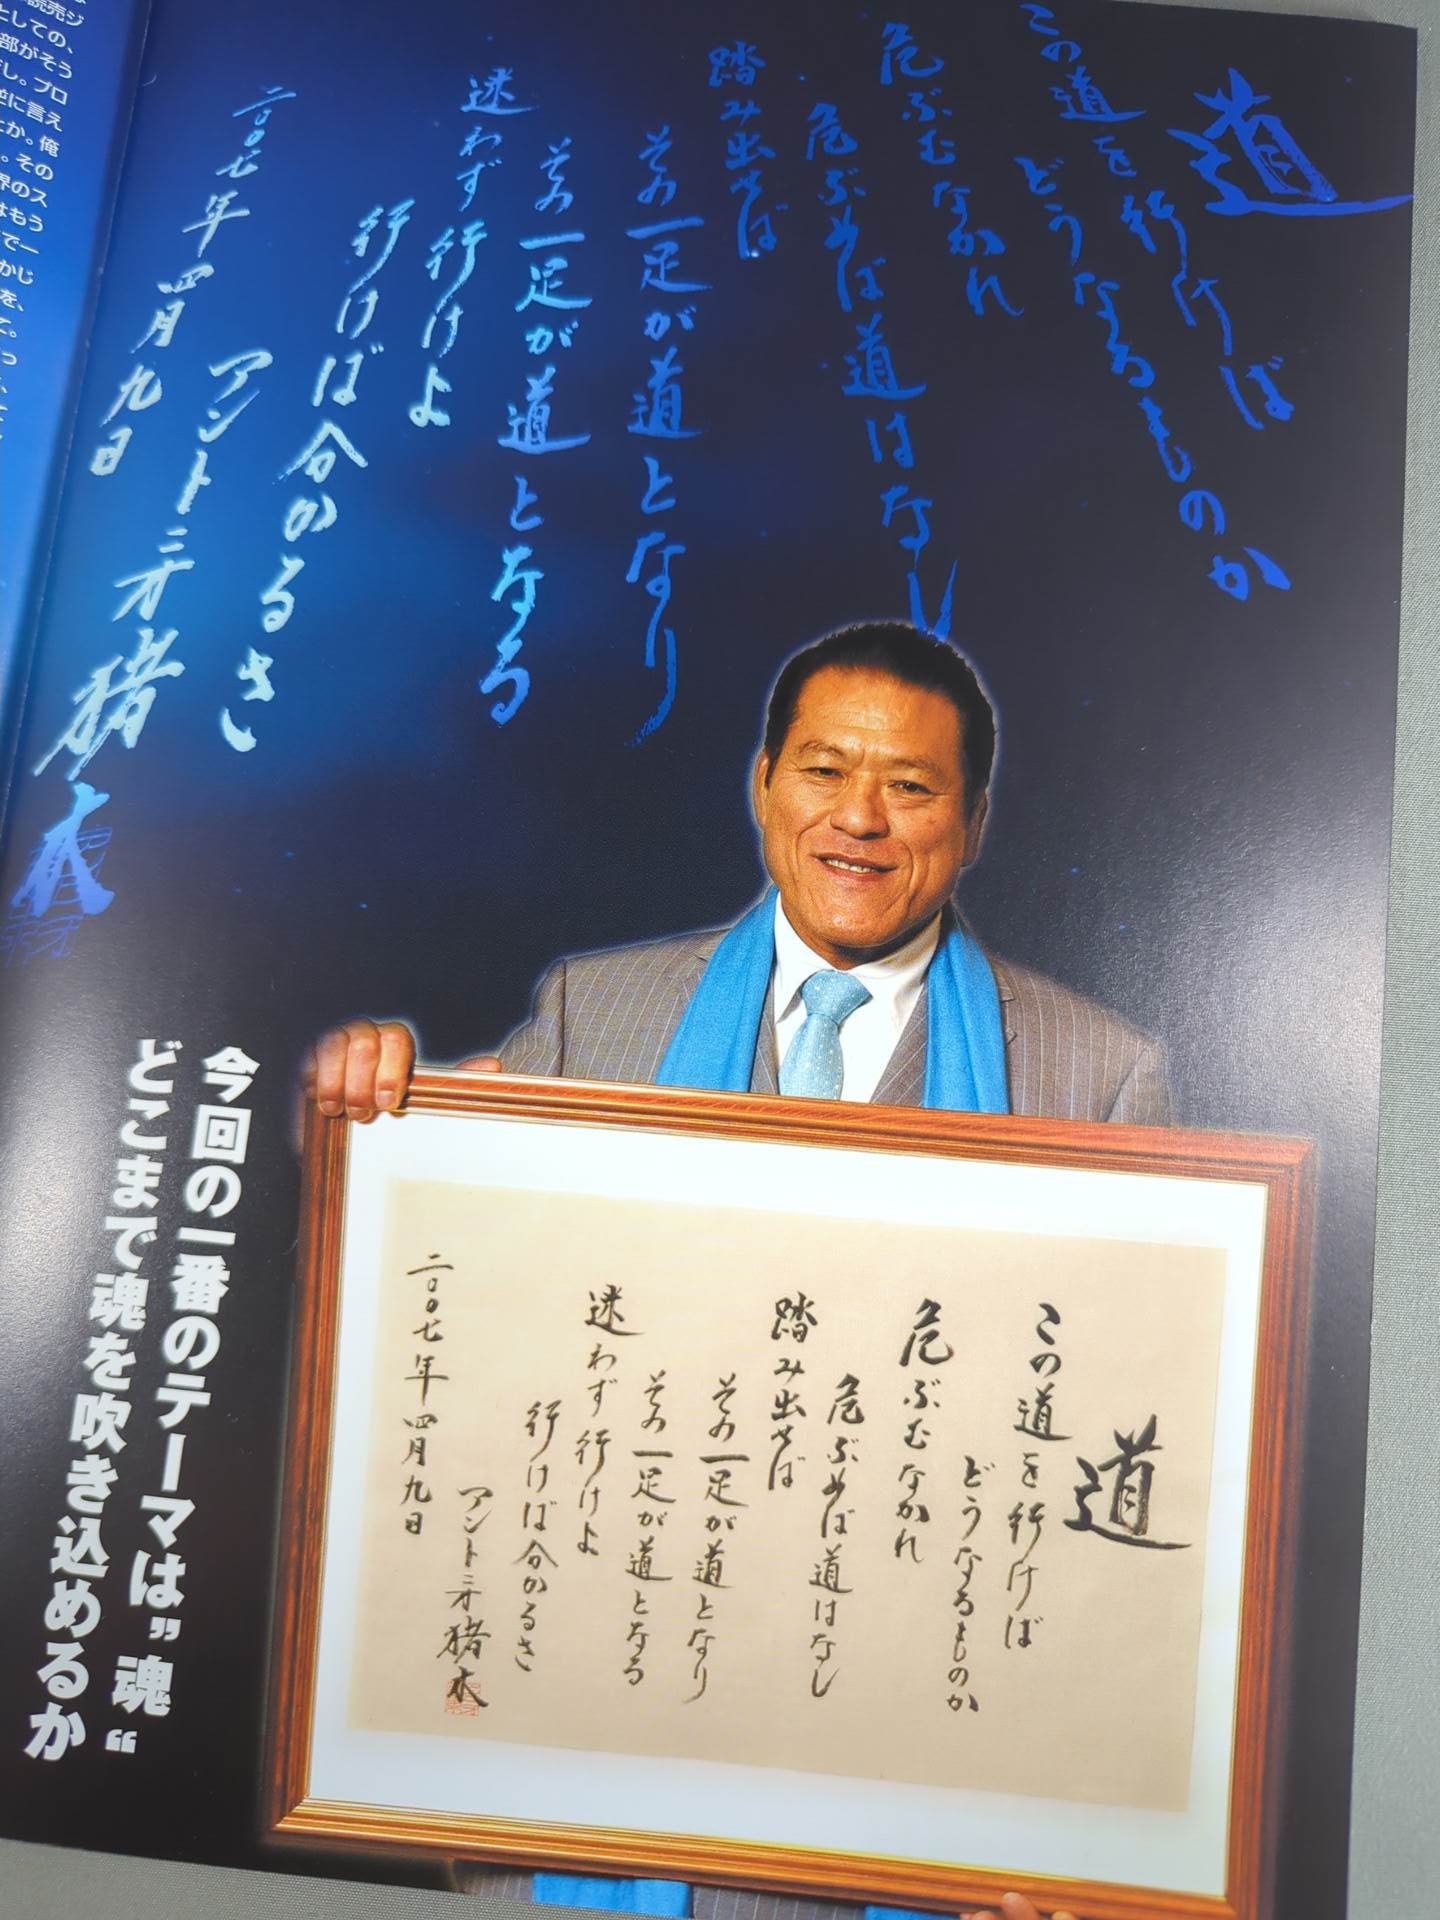 道
この道を行けば
どうなるものか
危ぶむなかれ
危ぶめば道はなし
踏み出せば
その一足が道となり
その一足が道となる
迷わず行けよ
行けば分かるさ
アントニオ猪木
二〇〇七年四月九日
今回の一番のテーマは”魂“
どこまで魂を吹き込めるか
道
この道を行けば
どうなるものか
危ぶむなかれ
危ぶめば道はなし
踏み出せば
その一足が道となり
その一足が道となる
迷わず行けよ
行けば分かるさ
アントニオ猪木
二〇〇七年四月九日
としての、
部がそう
し。プロ
逆に言え
とか。俺
。その
界のス
はもう
で一
かじ
を、